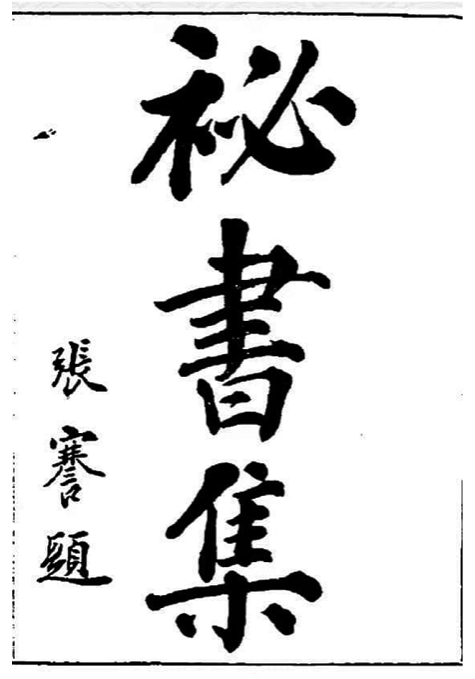 祕書集
張謇題